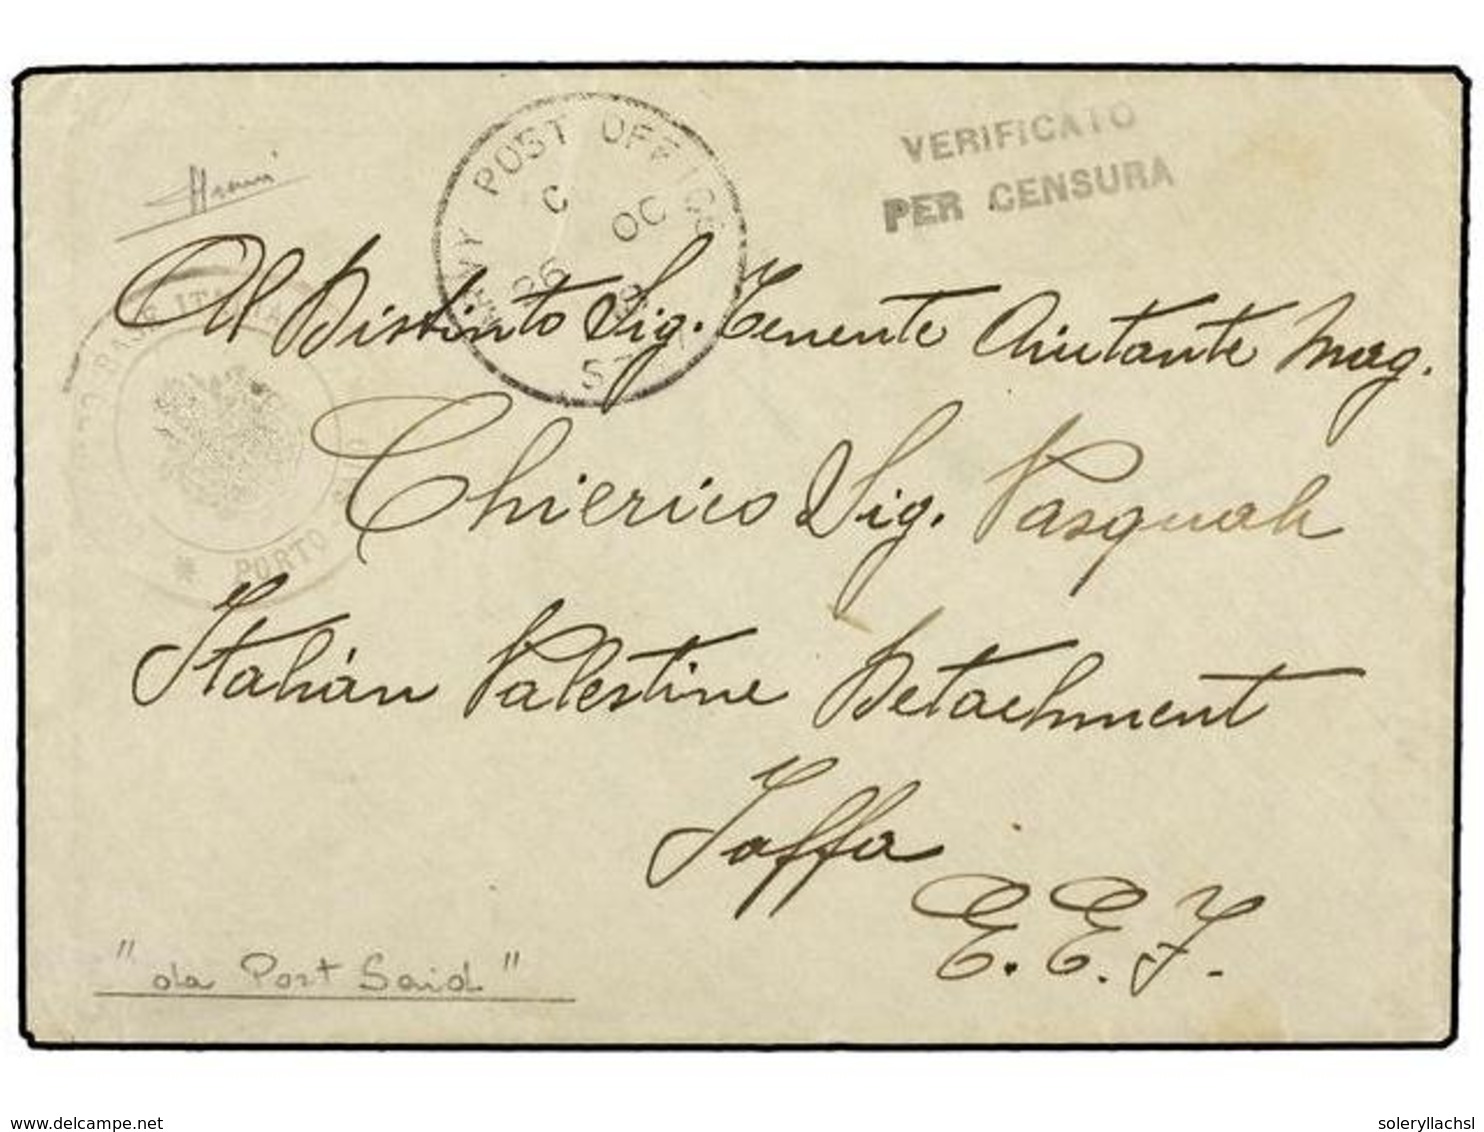 VERIFICATO
PER CENSURA
ARMY POST OFFICE
C
26 OC
18
SZ
Al Distinto Sig. Tenente Aiutante Mag.
Chierico Sig. Pasquale
Italián Palestine Detachment
Jaffa
E. E. F.
BASE ITALIANA
* PORTO
" da Port Said "
www.delcampe.net
soleryllachsl